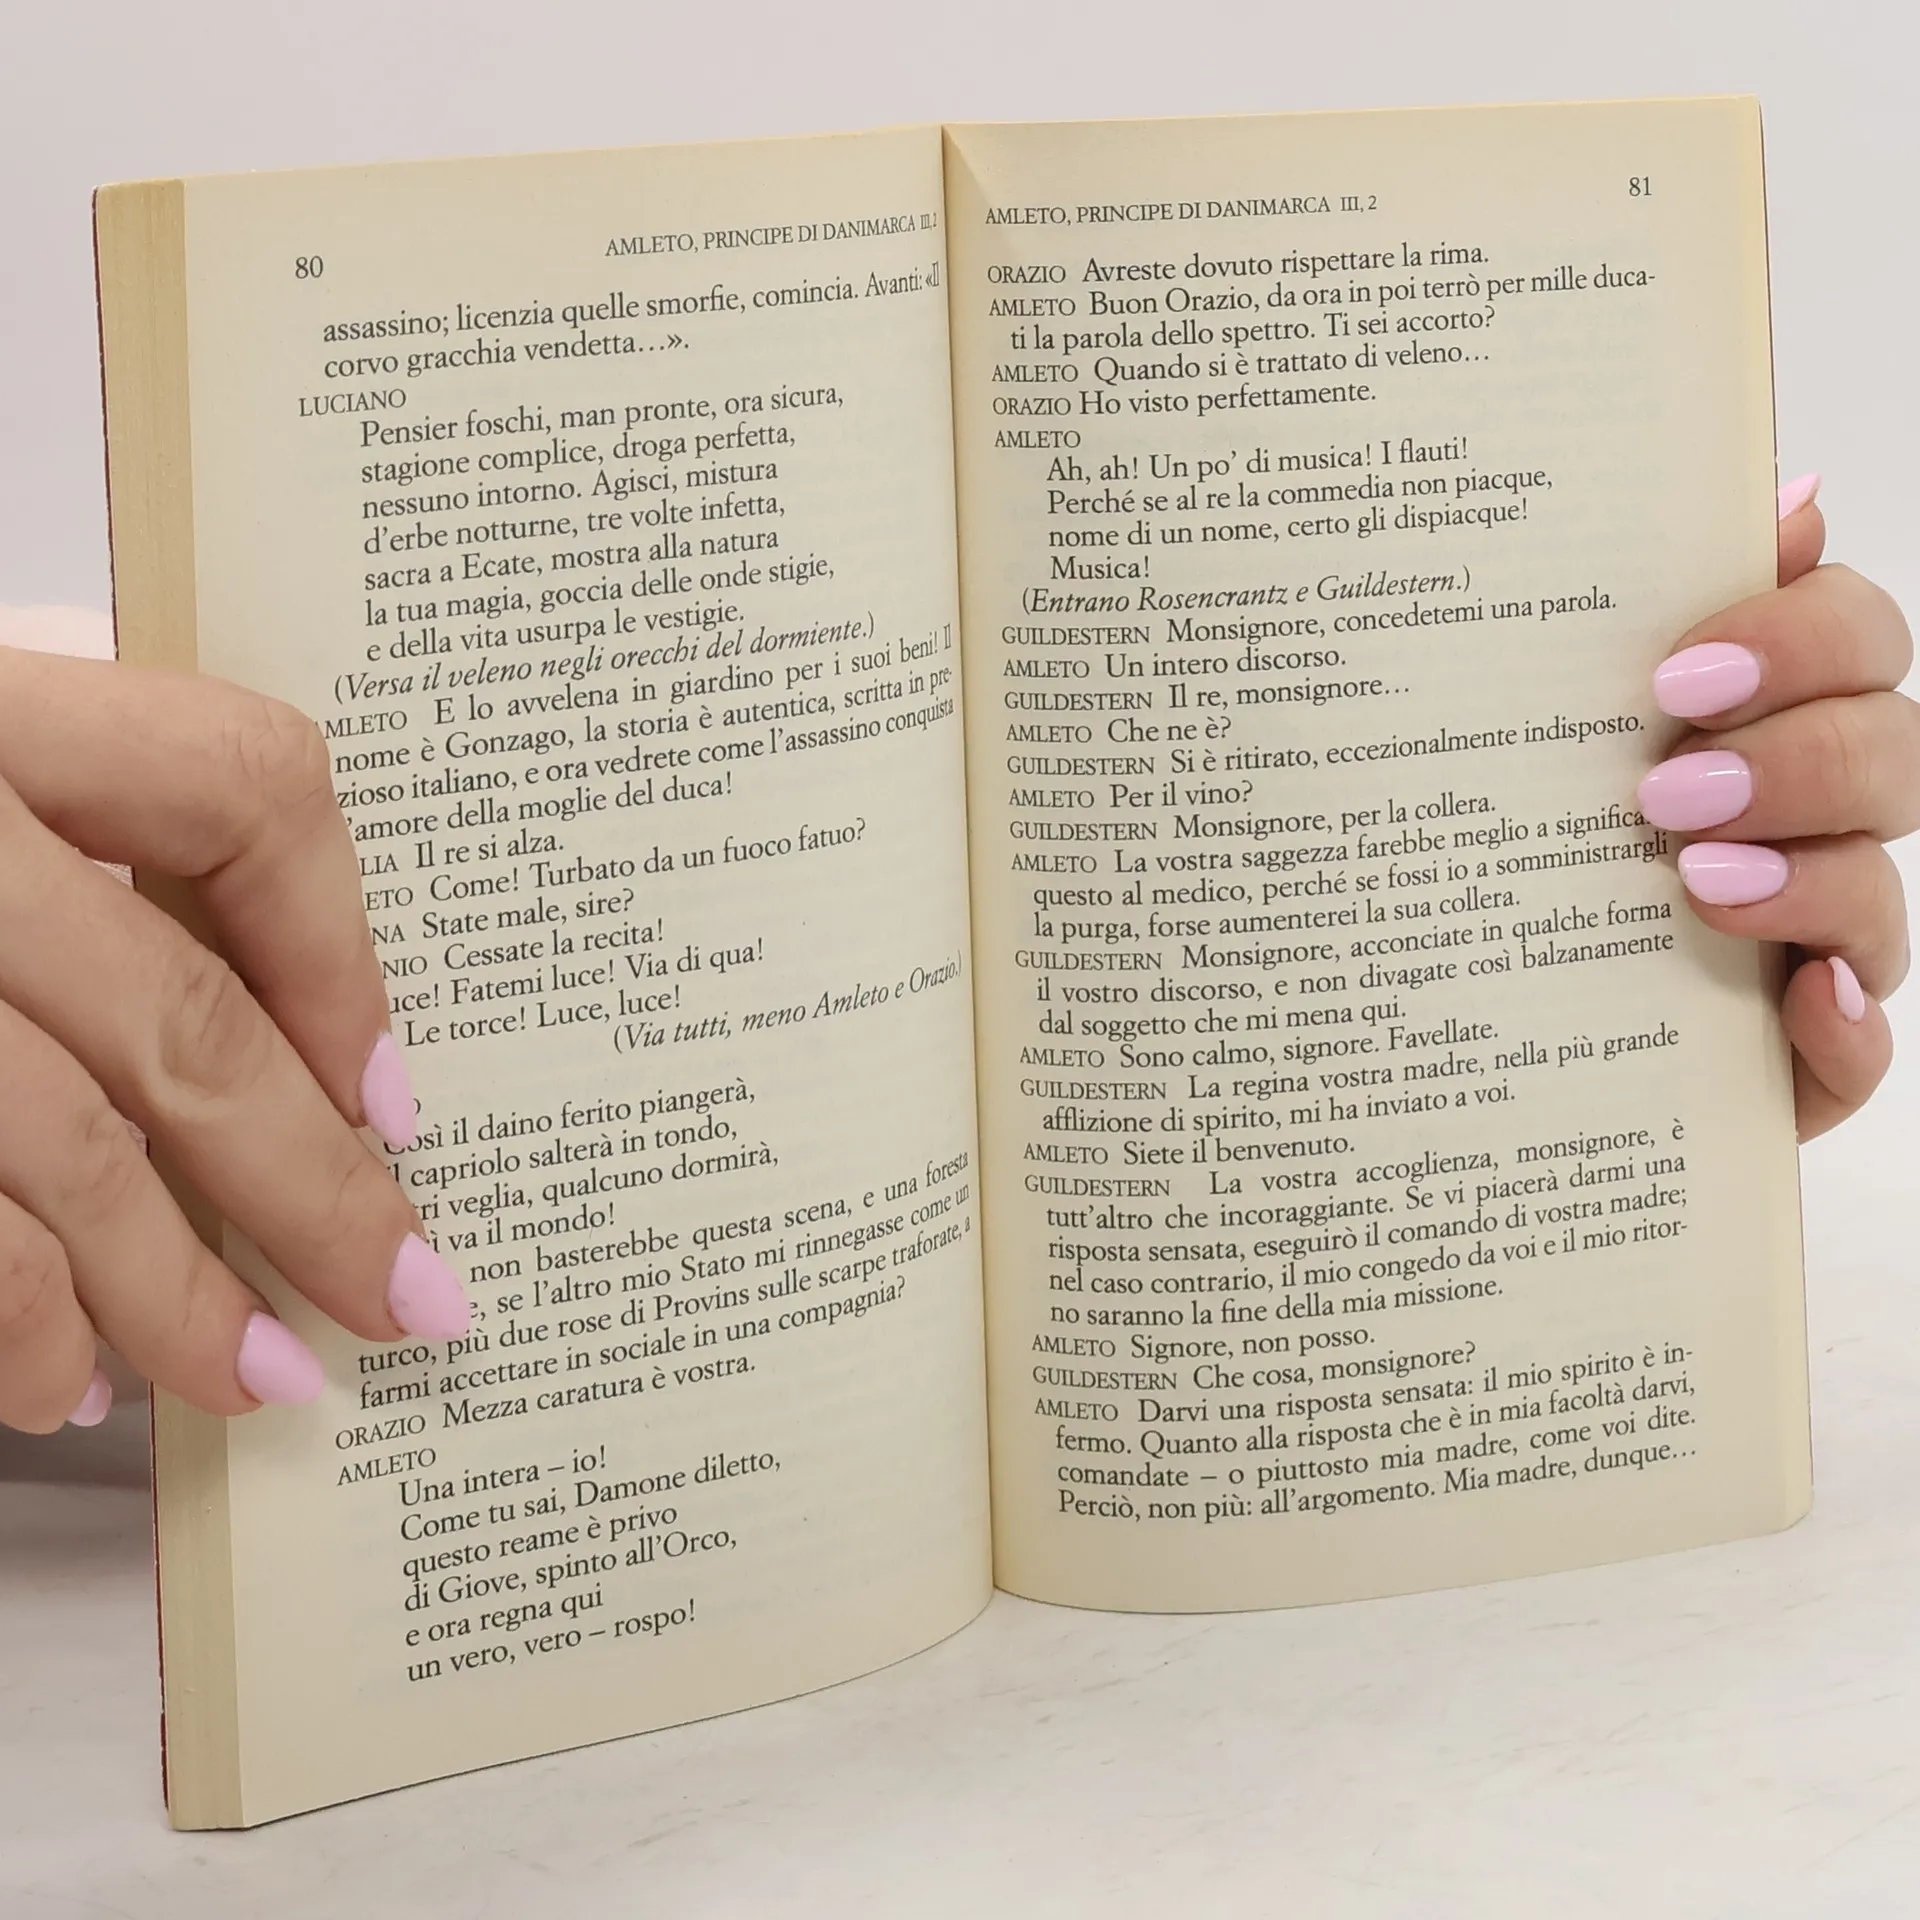 80
AMLETO, PRINCIPE DI DANIMARCA III, 2
assassino; licenzia quelle smorfie, comincia. Avanti: «Il
corvo gracchia vendetta…».
LUCIANO
Pensier foschi, man pronte, ora sicura,
stagione complice, droga perfetta,
nessuno intorno. Agisci, mistura
d’erbe notturne, tre volte infetta,
sacra a Ecate, mostra alla natura
la tua magia, goccia delle onde stigie,
e della vita usurpa le vestigie.
(Versa il veleno negli orecchi del dormiente.)
MLETO E lo avvelena in giardino per i suoi beni! Il
nome è Gonzago, la storia è autentica, scritta in pre-
zioso italiano, e ora vedrete come l’assassino conquista
’amore della moglie del duca!
LIA Il re si alza.
ETO Come! Turbato da un fuoco fatuo?
NA State male, sire?
NIO Cessate la recita!
uce! Fatemi luce! Via di qua!
Le torce! Luce, luce!
(Via tutti, meno Amleto e Orazio.)
O
Così il daino ferito piangerà,
l capriolo salterà in tondo,
tri veglia, qualcuno dormirà,
ì va il mondo!
non basterebbe questa scena, e una foresta
e, se l’altro mio Stato mi rinnegasse come un
turco, più due rose di Provins sulle scarpe traforate, a
farmi accettare in sociale in una compagnia?
ORAZIO Mezza caratura è vostra.
AMLETO
Una intera – io!
Come tu sai, Damone diletto,
questo reame è privo
di Giove, spinto all’Orco,
e ora regna qui
un vero, vero – rospo!
AMLETO, PRINCIPE DI DANIMARCA III, 2
81
ORAZIO Avreste dovuto rispettare la rima.
AMLETO Buon Orazio, da ora in poi terrò per mille duca-
ti la parola dello spettro. Ti sei accorto?
AMLETO Quando si è trattato di veleno…
ORAZIO Ho visto perfettamente.
AMLETO
Ah, ah! Un po’ di musica! I flauti!
Perché se al re la commedia non piacque,
nome di un nome, certo gli dispiacque!
Musica!
(Entrano Rosencrantz e Guildestern.)
GUILDESTERN Monsignore, concedetemi una parola.
AMLETO Un intero discorso.
GUILDESTERN Il re, monsignore…
AMLETO Che ne è?
GUILDESTERN Si è ritirato, eccezionalmente indisposto.
AMLETO Per il vino?
GUILDESTERN Monsignore, per la collera.
AMLETO La vostra saggezza farebbe meglio a significa
questo al medico, perché se fossi io a somministrargli
la purga, forse aumenterei la sua collera.
GUILDESTERN Monsignore, acconciate in qualche forma
il vostro discorso, e non divagate così balzanamente
dal soggetto che mi mena qui.
AMLETO Sono calmo, signore. Favellate.
GUILDESTERN La regina vostra madre, nella più grande
afflizione di spirito, mi ha inviato a voi.
AMLETO Siete il benvenuto.
GUILDESTERN La vostra accoglienza, monsignore, è
tutt’altro che incoraggiante. Se vi piacerà darmi una
risposta sensata, eseguirò il comando di vostra madre;
nel caso contrario, il mio congedo da voi e il mio ritor-
no saranno la fine della mia missione.
AMLETO Signore, non posso.
GUILDESTERN Che cosa, monsignore?
AMLETO Darvi una risposta sensata: il mio spirito è in-
fermo. Quanto alla risposta che è in mia facoltà darvi,
comandate – o piuttosto mia madre, come voi dite.
Perciò, non più: all’argomento. Mia madre, dunque…